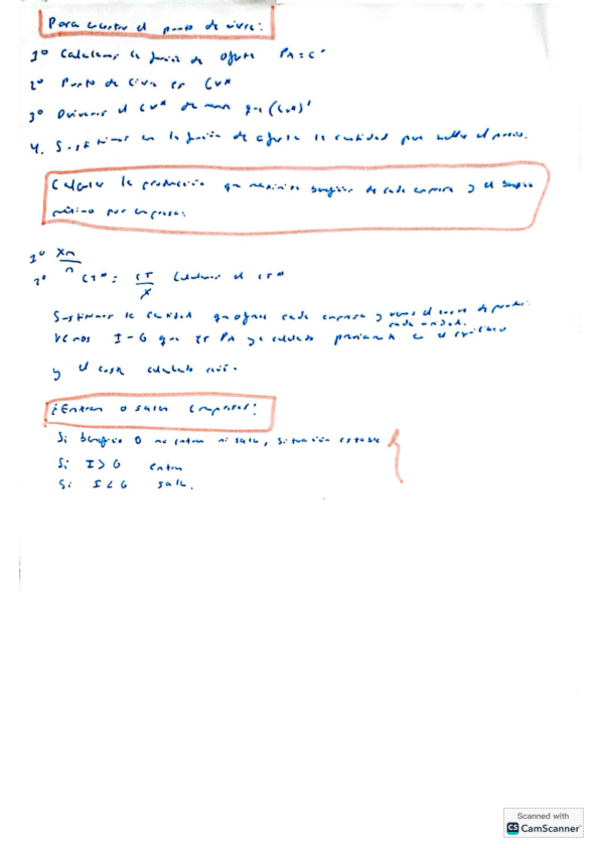 Para calcular el punto de cierre:
1º Calculamos la función de oferta PA = C'
2º Punto de cierre es CV*
3º Derivamos el CV* de manera que (CV*)'
4. Sustituimos en la función de oferta la cantidad para hallar el precio.
Calcular la producción que maximiza beneficio de cada empresa y el beneficio
máximo por empresa:
1º Xn
n
2º CT* = CT Calculamos el CT*
X
Sustituimos la cantidad que ofrece cada empresa y vemos el coste de
cada unidad.
Vemos I-G que es PA ya calculado en el
y el coste calculado
¿Entran o salen empresas?
Si beneficio 0 no entran ni salen, situación estable
Si I > G entran
Si I < G salen.
Scanned with
CS CamScanner